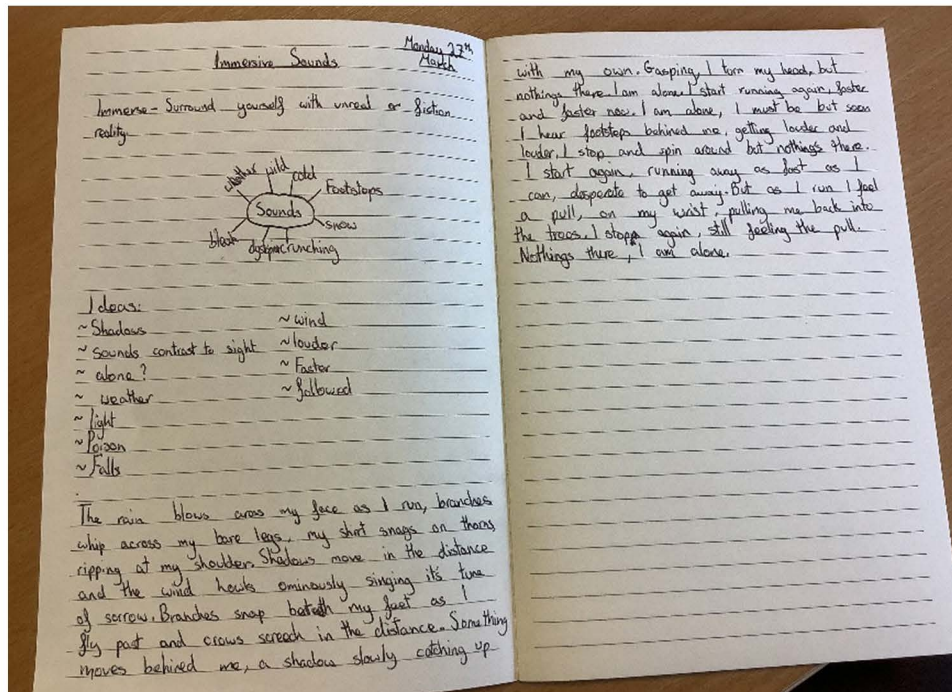 Monday 27th
March
Immersive Sounds
Immerse - Surround yourself with unreal or fiction
reality.
whether wild cold
Footsteps
Sounds
snow
bleak crunching
Ideas:
~ Shadows
~ sounds contrast to sight
~ alone?
~ weather
~ light
~ Poison
~ Falls
~ wind
~ louder
~ Faster
~ followed
The rain blows aross my face as I run, branches
whip across my bare legs, my shirt snags on thorns,
ripping at my shoulder. Shadows move in the distance
and the wind howls ominously singing it's tune
of sorrow. Branches snap my feet as I
fly past and crows screech in the distance. Something
moves behined me, a shadow slowly catching up
with my own. Gasping, I torn my head, but
nothings there. I am alone. I start running again, faster
and faster now. I am alone, I must be but soon
I hear footsteps behined me, getting louder and
louder. I stop and spin around but nothing's there.
I start again, running away as fast as I
can, desperate to get away. But as I run I feel
a pull, on my wrist, pulling me back into
the trees. I stopp again, still feeling the pull.
Nothings there, I am alone.